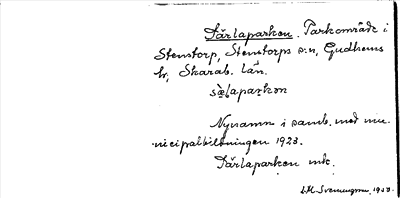 Pärlaparken. Parkområde i
Stenstorp, Stenstorps s:n, Gudhems
hd, Skarab. län.
Nynamn i samb. med mu-
nicipalbildningen 1923.
Pärlaparken mtk.
1933.